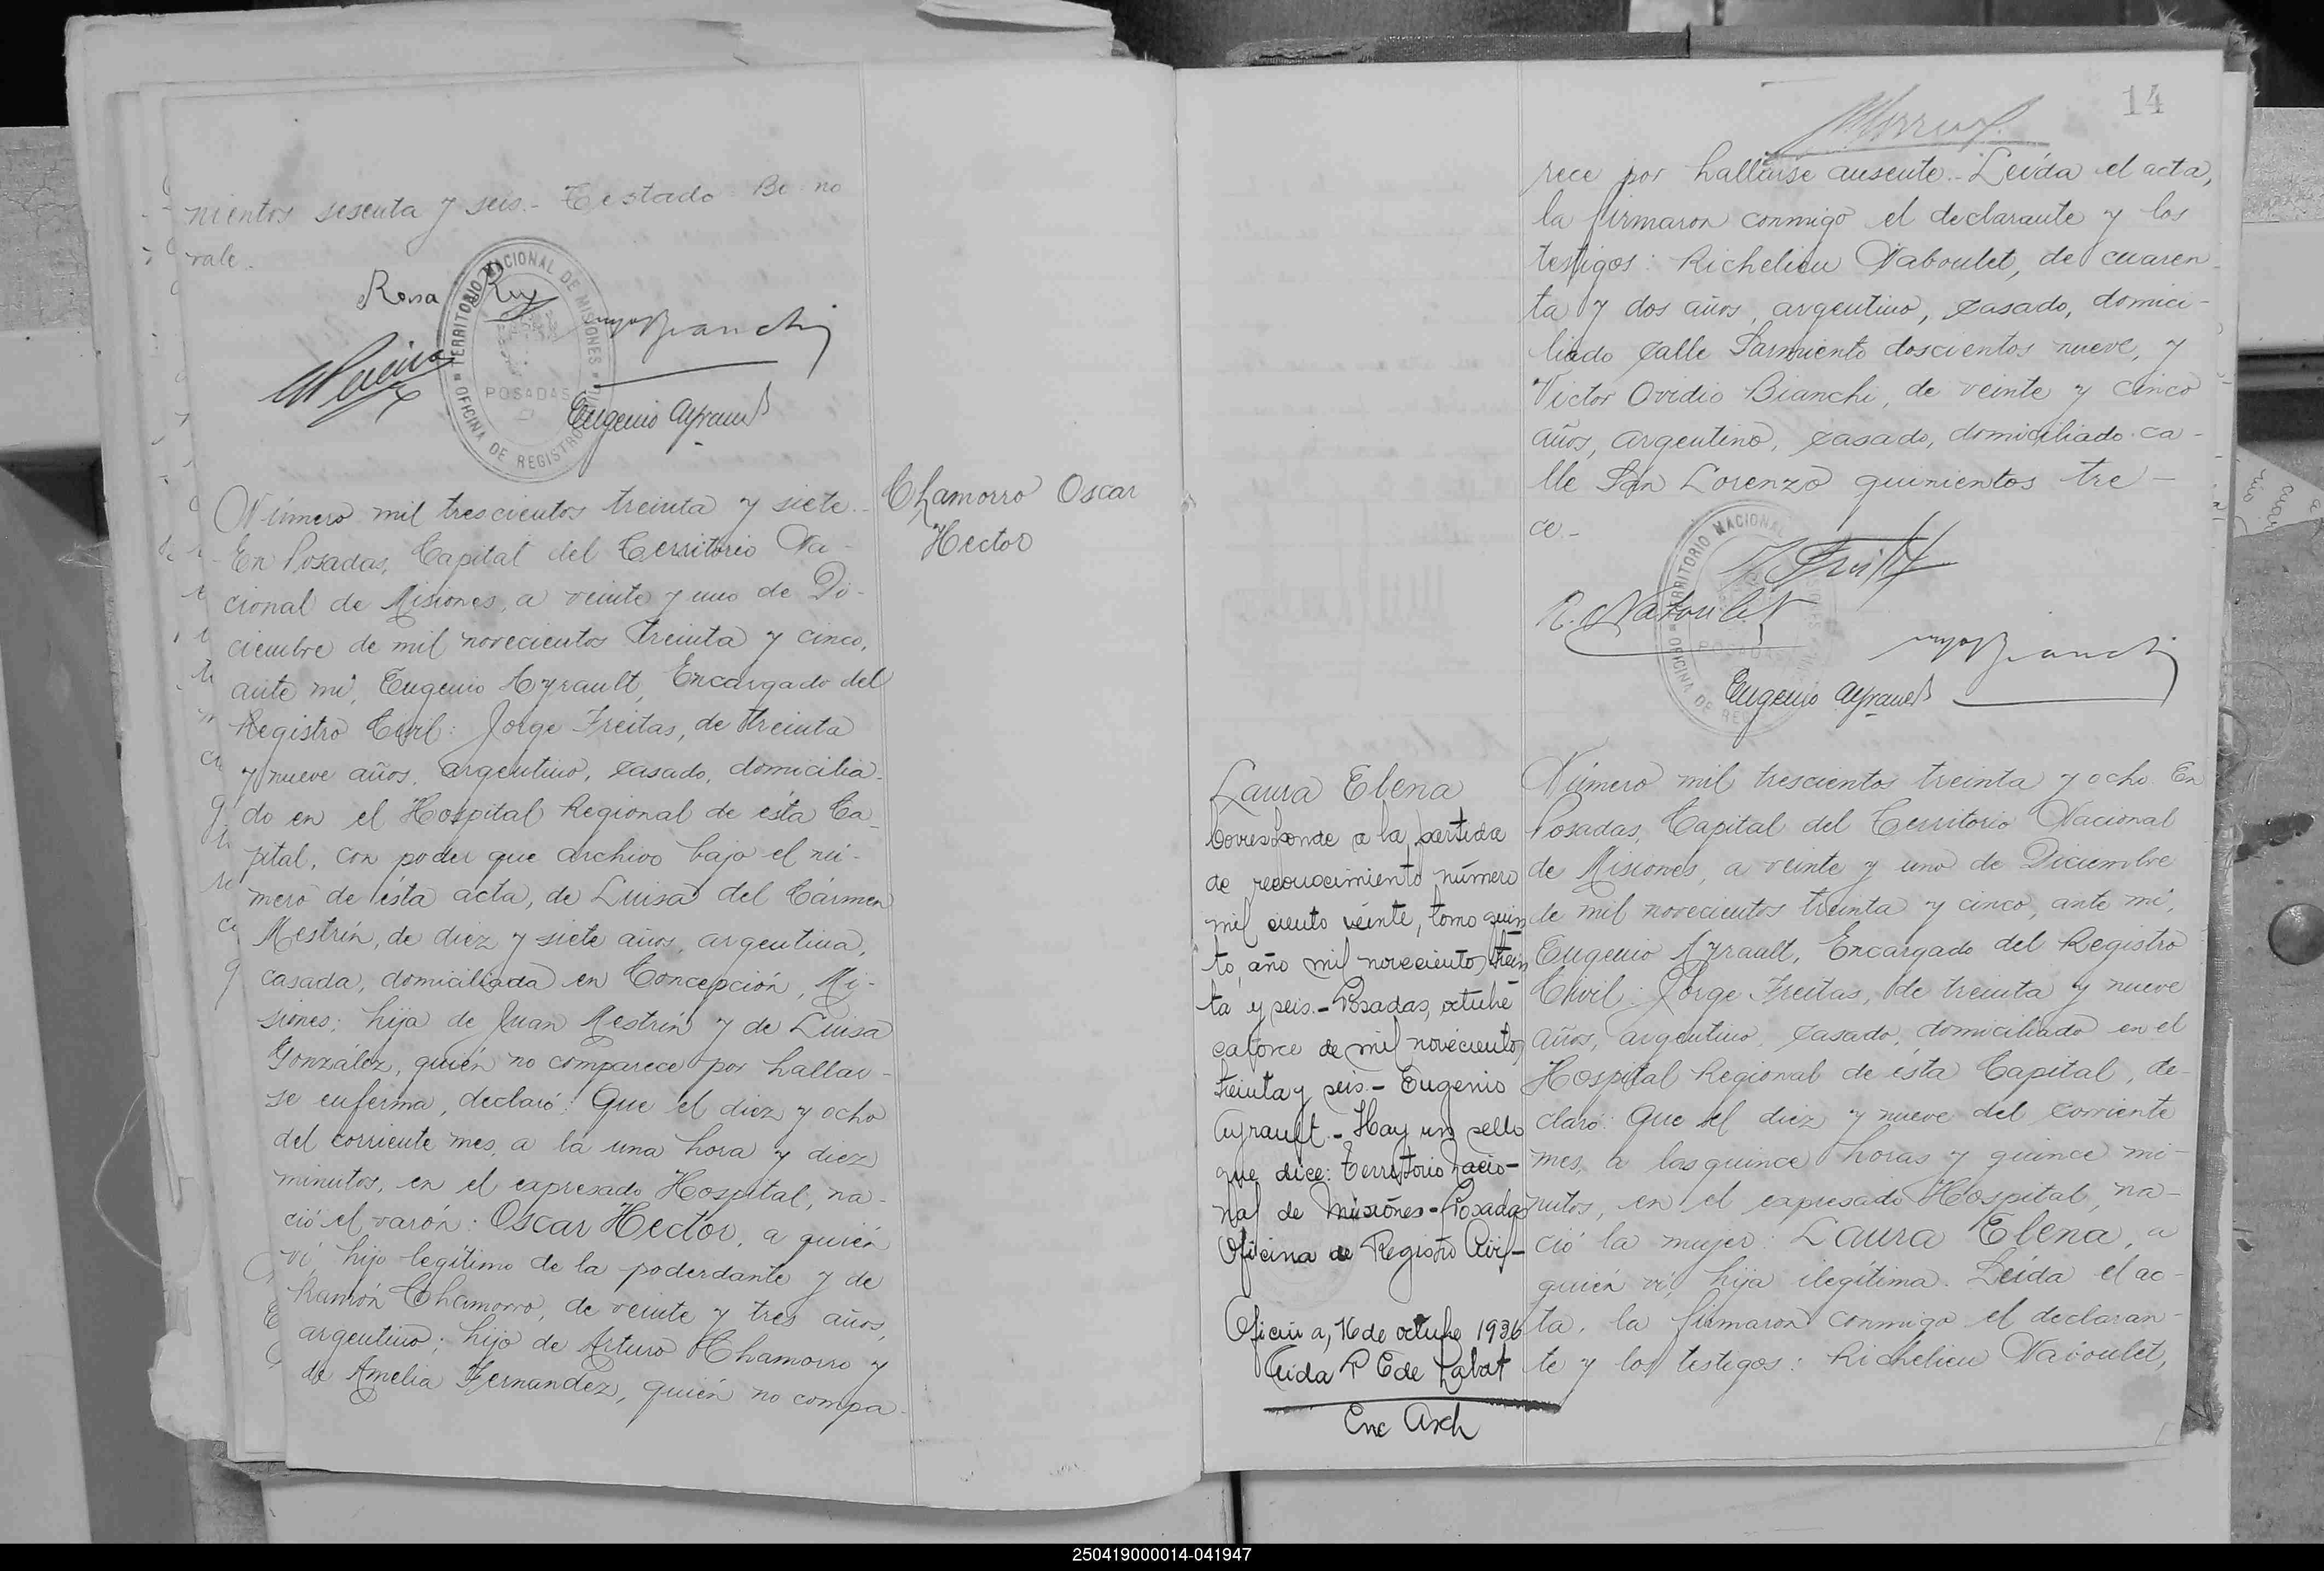 nientos sesenta y seis.- Testado Be no
vale.
Rosa Rey
Bianchi
TERRITORIO NACIONAL DE MISIONES
POSADAS
OFICINA DE REGISTRO CIVIL
Eugenio Ayrault
Chamorro Oscar
Hector
Número mil trescientos treinta y siete.-
En Posadas, Capital del Territorio Na-
cional de Misiones, a veinte y uno de Di-
ciembre de mil novecientos treinta y cinco,
ante mí, Eugenio Ayrault, Encargado del
Registro Civil: Jorge Freitas, de treinta
y nueve años, argentino, casado, domicilia-
do en el Hospital Regional de ésta Ca-
pital, con poder que archivo bajo el nú-
mero de ésta acta, de Luisa del Cármen
Mestrín, de diez y siete años, argentina,
casada, domiciliada en Concepción, Mi-
siones; hija de Juan Mestrín y de Luisa
González, quién no comparece por hallar-
se enferma, declaró: Que el diez y ocho
del corriente mes, a la una hora y diez
minutos, en el expresado Hospital, na-
ció el varón: Oscar Hector, a quién
ví, hijo legítimo de la poderdante y de
Ramón Chamorro, de veinte y tres años,
argentino; hijo de Arturo Chamorro y
de Amelia Fernandez, quién no compa-
14
rece por hallarse ausente.- Leída el acta,
la firmaron conmigo el declarante y los
testigos: Richelieu Naboulet, de cuaren-
ta y dos años, argentino, casado, domici-
liado calle Sarmiento doscientos nueve, y
Victor Ovidio Bianchi, de veinte y cinco
años, argentino, casado, domiciliado ca-
lle San Lorenzo quinientos tre-
ce.-
J Freitas
R. Naboulet
Bianchi
TERRITORIO NACIONAL
POSADAS
OFICINA DE REG
Eugenio Ayrault
Laura Elena
Corresponde a la partida
de reconocimiento número
mil ciento veinte, tomo quin
to, año mil novecientos trein
ta y seis.- Posadas, octubre
catorce de mil novecientos
treinta y seis.- Eugenio
Ayrault.- Hay un sello
que dice: Territorio Nacio-
nal de Misiones- Posadas
Oficina de Registro Civil-
Oficina, 16 de octubre 1936
Aida P E de Labat
Enc Arch
Número mil trescientos treinta y ocho. En
Posadas, Capital del Territorio Nacional
de Misiones, a veinte y uno de Diciembre
de mil novecientos treinta y cinco, ante mí,
Eugenio Ayrault, Encargado del Registro
Civil: Jorge Freitas, de treinta y nueve
años, argentino, casado, domiciliado en el
Hospital Regional de ésta Capital, de-
claró: Que el diez y nueve del corriente
mes, a las quince horas y quince mi-
nutos, en el expresado Hospital, na-
ció la mujer: Laura Elena, a
quién ví, hija ilegítima. Leída el ac-
ta, la firmaron conmigo el declaran-
te y los testigos: Richelieu Naboulet,
250419000014-041947